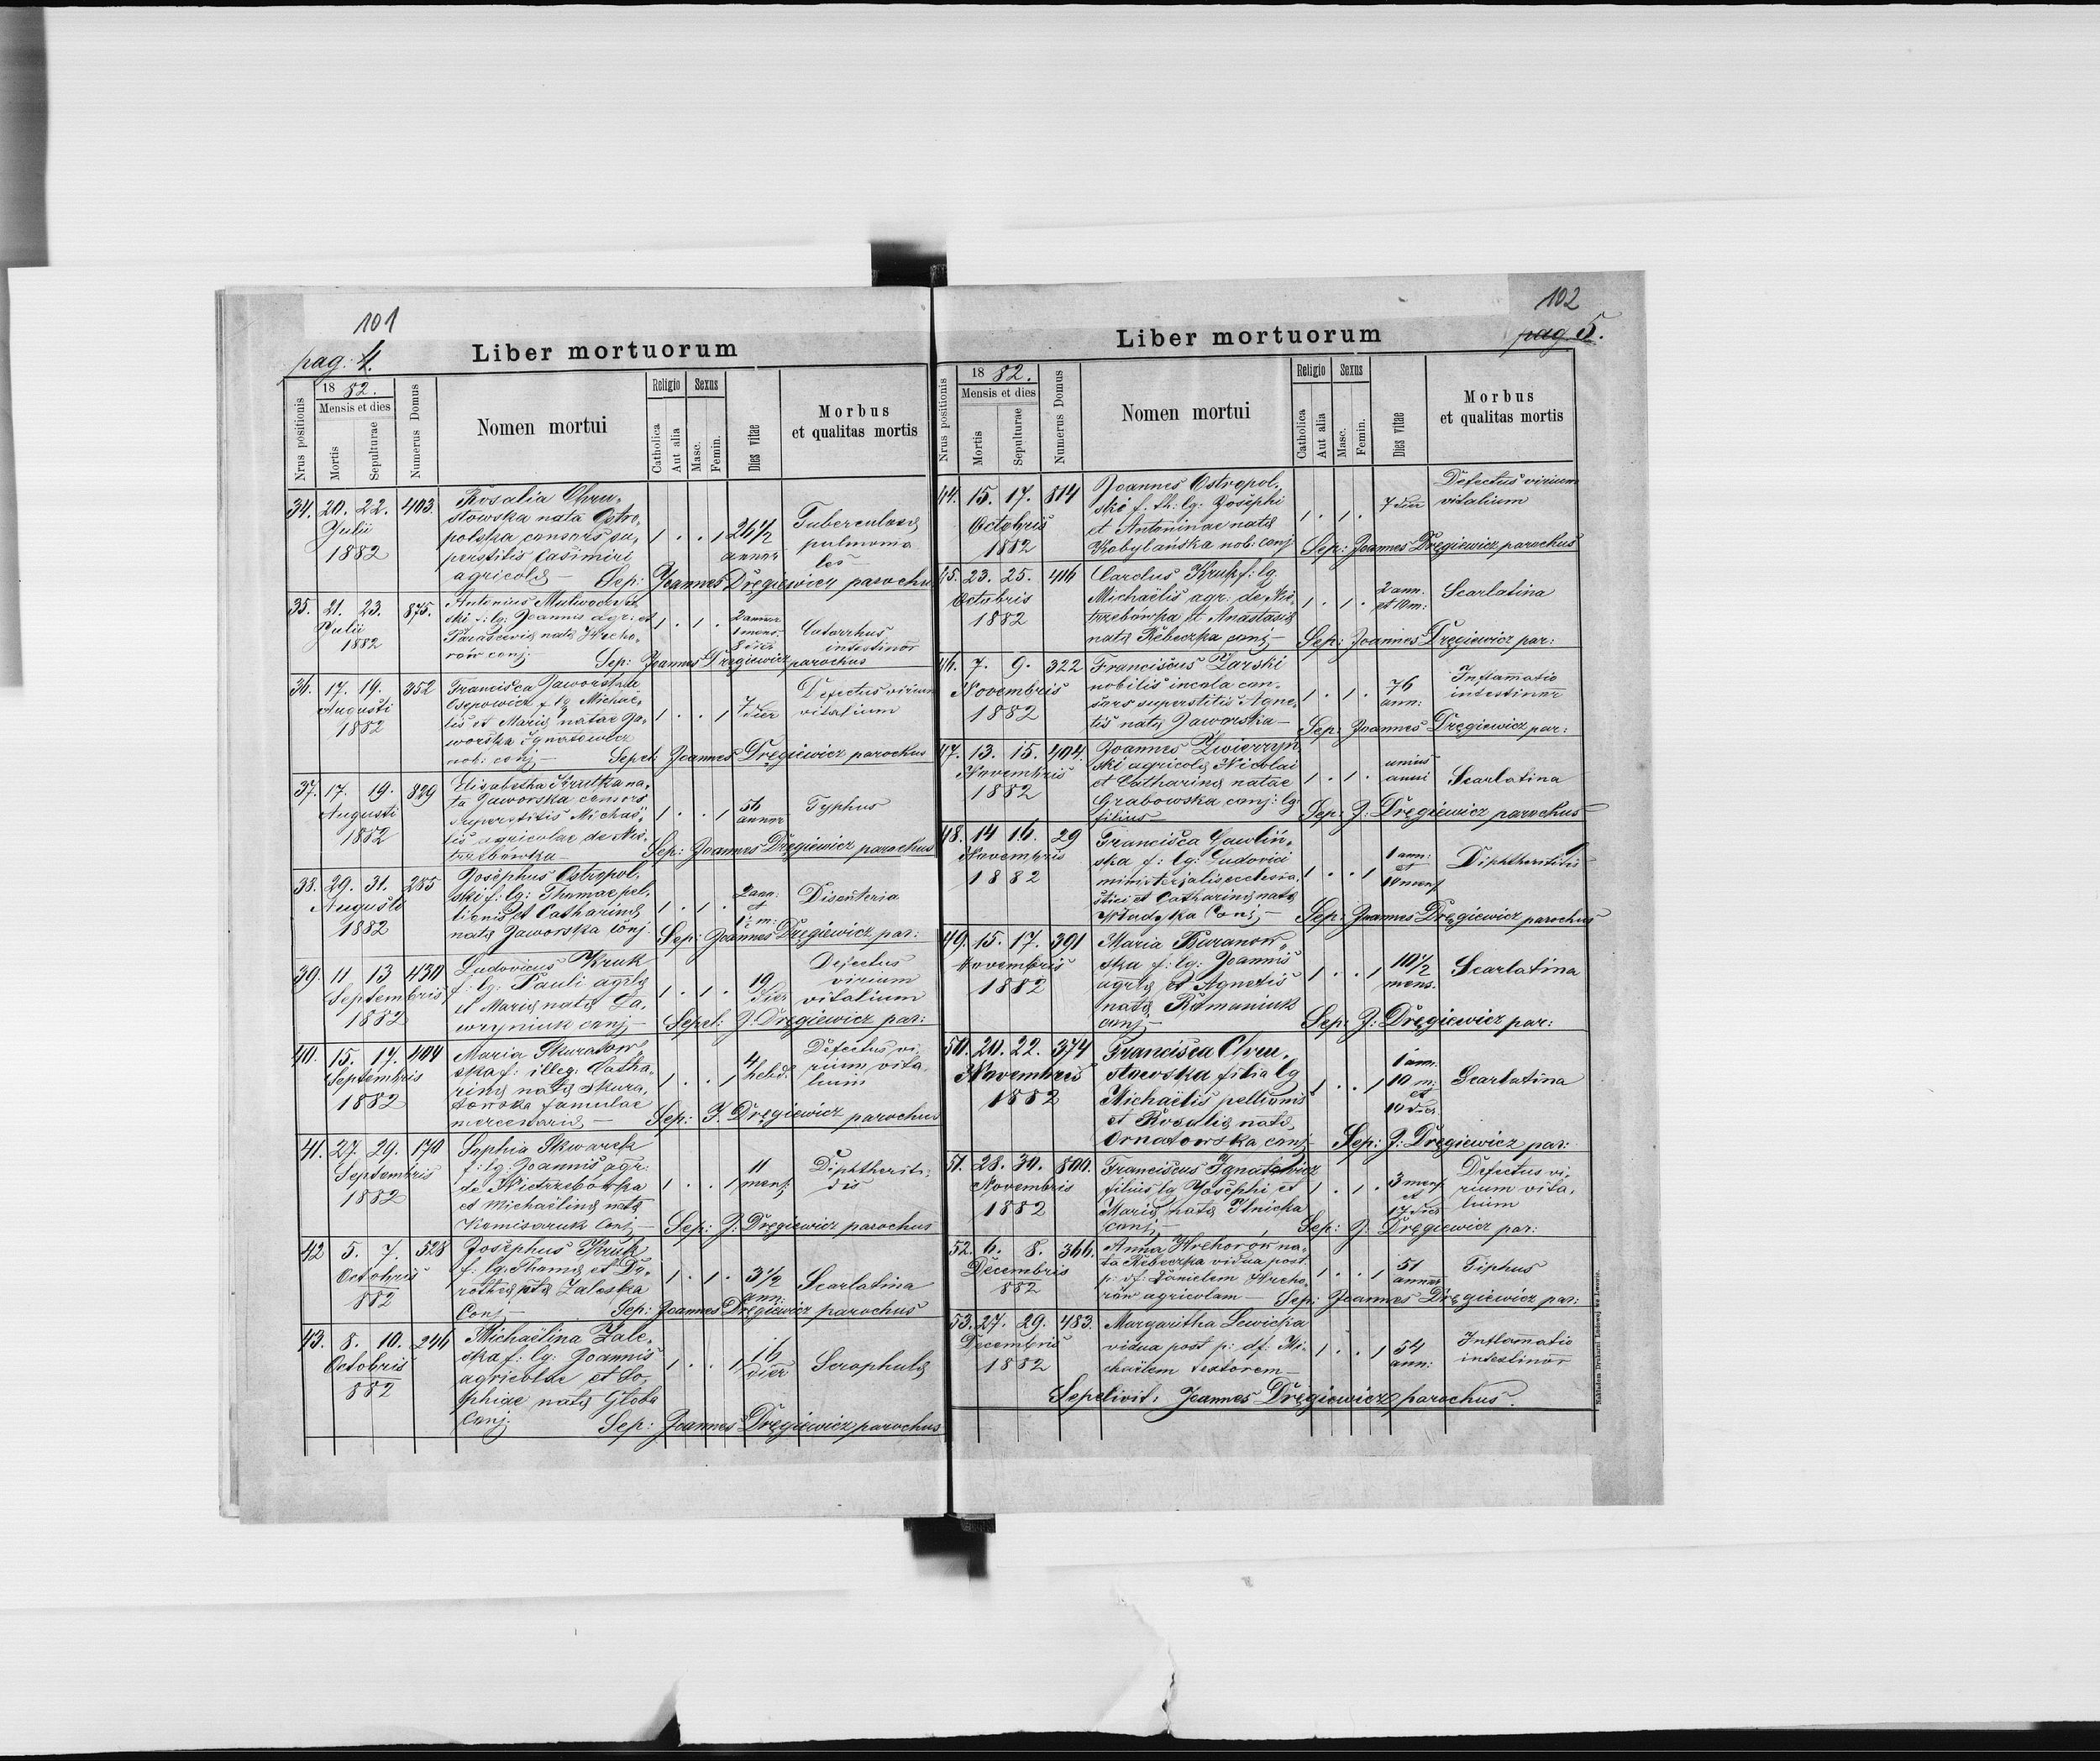 101
pag. 4.
Liber mortuorum
Nrus positionis
1882.
Mensis et dies
Mortis
Sepulturae
Numerus Domus
Nomen mortui
Religio
Catholica
Aut alia
Sexus
Masc.
Femin.
Dies vitae
Morbus
et qualitas mortis
34. 20. 22. 403. Rosalia Chru,
stowska nata Ostro,
Julii polska consors su, 1 . . 1 26 1/2 Tuberculosis
1882 perstitis Casimiri annor pulmona
agricolę — les
Sep: Joannes Dręgiewicz parochus
35. 21. 23. 875. Antonius
Julii ski f: lg: Joannis agr: et 1 . 1 . 2 annor Catarrhus
1882 Parascevię natę Hreho, 1 mens. intestinor
rów conj: 8 dies
Sep: Joannes Dręgiewicz parochus
36. 17. 19. 352 Francisca Jaworska
Augusti Osepowicz f: lg Michaë, Defectus virium
1882 lis et Marię natae Ja, 1 . . 1 7 dier vitalium
worska Ignatowicz
nob: conj — Sepel: Joannes Dręgiewicz parochus
37. 17. 19. 829 Elisabetha Krutka na,
Augusti ta Jaworska consors 1 . . 1 56 Typhus
1882 superstitis Michaë, annor
lis agricolae de Nie,
trzebówka — Sep: Joannes Dręgiewicz parochus
38. 29. 31. 285 Josephus Ostropol,
Augusti ski f: lg: Thomae pel, 2 ann. Disenteria
1882 lionis et Catharinę 1 . 1 . et
natę Jaworska conj 1 1/2 m:
Sep: Joannes Dręgiewicz par:
39. 11 13 430 Ludovicus Kruk Defectus
Septembris f: lg: Pauli agrlę 1 . 1 . 19 virium
1882 et Marię natę Ła, dier vitalium
wryniuk conj — Sepel: J: Dręgiewicz par:
40. 15. 17. 404 Maria Skuratow, Defectus vi,
Septembris ska f: illeg: Catha, 4 rium vita,
1882 rinę natę Skura, 1 . . 1 hebd. lium
towska famulae
mercenarię — Sep: J. Dręgiewicz parochus
41. 27. 29. 170 Sophia Skwarek
Septembris f: lg: Joannis agr: 11 Diphtherit:
1882 de Nietrzebówka 1 . . 1 mens dis
et Michaëlinę natę
Komisaruk Conj — Sep: J: Dręgiewicz parochus
42 5. 7. 528 Josephus Kruk
Octobris f: lg: Thomę et Do, 1 . 1 . 3 1/2 Scarlatina
882 rotheę natę Zaleska ann:
Conj — Sep: Joannes Dręgiewicz parochus
43. 8. 10. 246 Michaëlina Zale,
Octobris ska f: lg: Joannis 16 Scrophulę
882 agricolae et So, 1 . . 1 dier
phiae natę Globa
Conj. Sep: Joannes Dręgiewicz parochus
102
pag 5.
Liber mortuorum
Nrus positionis
1882.
Mensis et dies
Mortis
Sepulturae
Numerus Domus
Nomen mortui
Religio
Catholica
Aut alia
Sexus
Masc.
Femin.
Dies vitae
Morbus
et qualitas mortis
44. 15. 17. 814 Joannes Ostropol, Defectus virium
Octobris ski f. lg: Josephi 1 . 1 . 7 dier vitalium
1882 et Antoninae natę
Kobylańska nob: conj Sep: Joannes Dręgiewicz parochus
45. 23. 25. 416 Carolus Kruk f: lg.
Octobris Michaëlis agr: de Nie, 1 . 1 . 2 ann. Scarlatina
1882 trzebówka et Anastasię et 10 m:
natę Rebeczka conj — Sep: Joannes Dręgiewicz par:
46. 7. 9. 322 Franciscus Żarski
Novembris nobilis incola con, 1 . 1 . 76 Inflamatio
1882 sors superstitis Agne, ann: intestinor
tis natę Jaworska — Sep: Joannes Dręgiewicz par:
47. 13. 15. 404. Joannes Zwierzyń
Novembris ski agricolę Nicolai unius
1882 et Catharinę natae 1 . 1 . anni Scarlatina
Grabowska conj: lg.
filius — Sep: J: Dręgiewicz parochus
48. 14 16. 29 Francisca Gawliń,
Novembris ska f: lg: Ludovici 1 ann: Diphtheritidis
1882 ministerjalis ecclesia, 1 . . 1 et
stici et Catharinę natę 10 mens
Władyka Conj — Sep: Joannes Dręgiewicz parochus
49. 15. 17. 391 Maria Baranow,
Novembris ska f: lg: Joannis 10 1/2 Scarlatina
1882 agrlę et Agnetis 1 . . 1 mens.
natę Romaniuk
conj — Sep: J: Dręgiewicz par:
50. 20. 22. 374 Francisca Chru,
Novembris stowska filia lg 1 ann. Scarlatina
1882 Michaëlis pellionis 1 . . 1 10 m:
et Rosalię natę et
Ornatowska conj — 10 dies. Sep: J: Dręgiewicz par:
51. 28. 30. 800. Franciscus Ignatowicz Defectus vi,
Novembris filius lg Josephi et 1 . 1 . 3 mens rium vita,
1882 Marię natę Ilnicka et lium
conj — 17 dies Sep: J: Dręgiewicz par:
52. 6. 8. 366. Anna Hrehorów na,
Decembris ta Rebeczka vidua post 1 . . 1 51 Tiphus
882 p: df: Danielem Hreho, annor
rów agricolam — Sep: Joannes Dręgiewicz par:
53. 27. 29. 483. Margaritha Lewicka
Decembris vidua post p: df: Mi, 1 . . 1 54 Inflamatio
1882 chaëlem textorem — ann: intestinor
Sepelivit: Joannes Dręgiewicz parochus.
Nakładem Drukarni Ludowej we Lwowie.